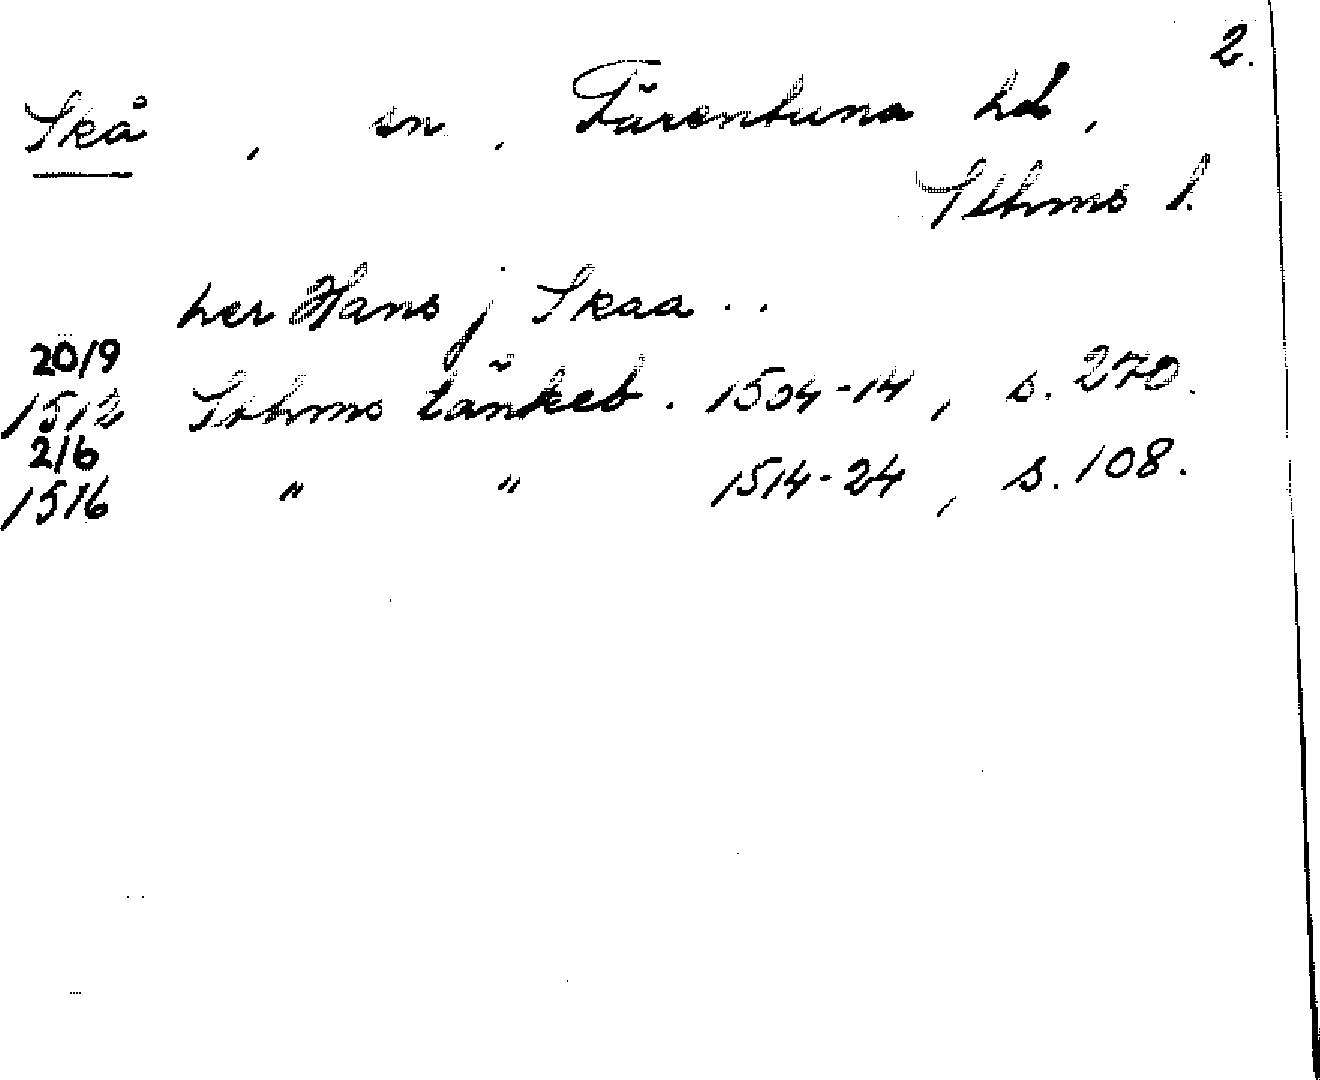 2.
Skå, sn, Färentuna hd,
Sthms l.
her Hans j Skaa ..
20/9
1512 Sthms tänkeb. 1504-14, s. 270.
2/6
1516 " " 1514-24, s. 108.